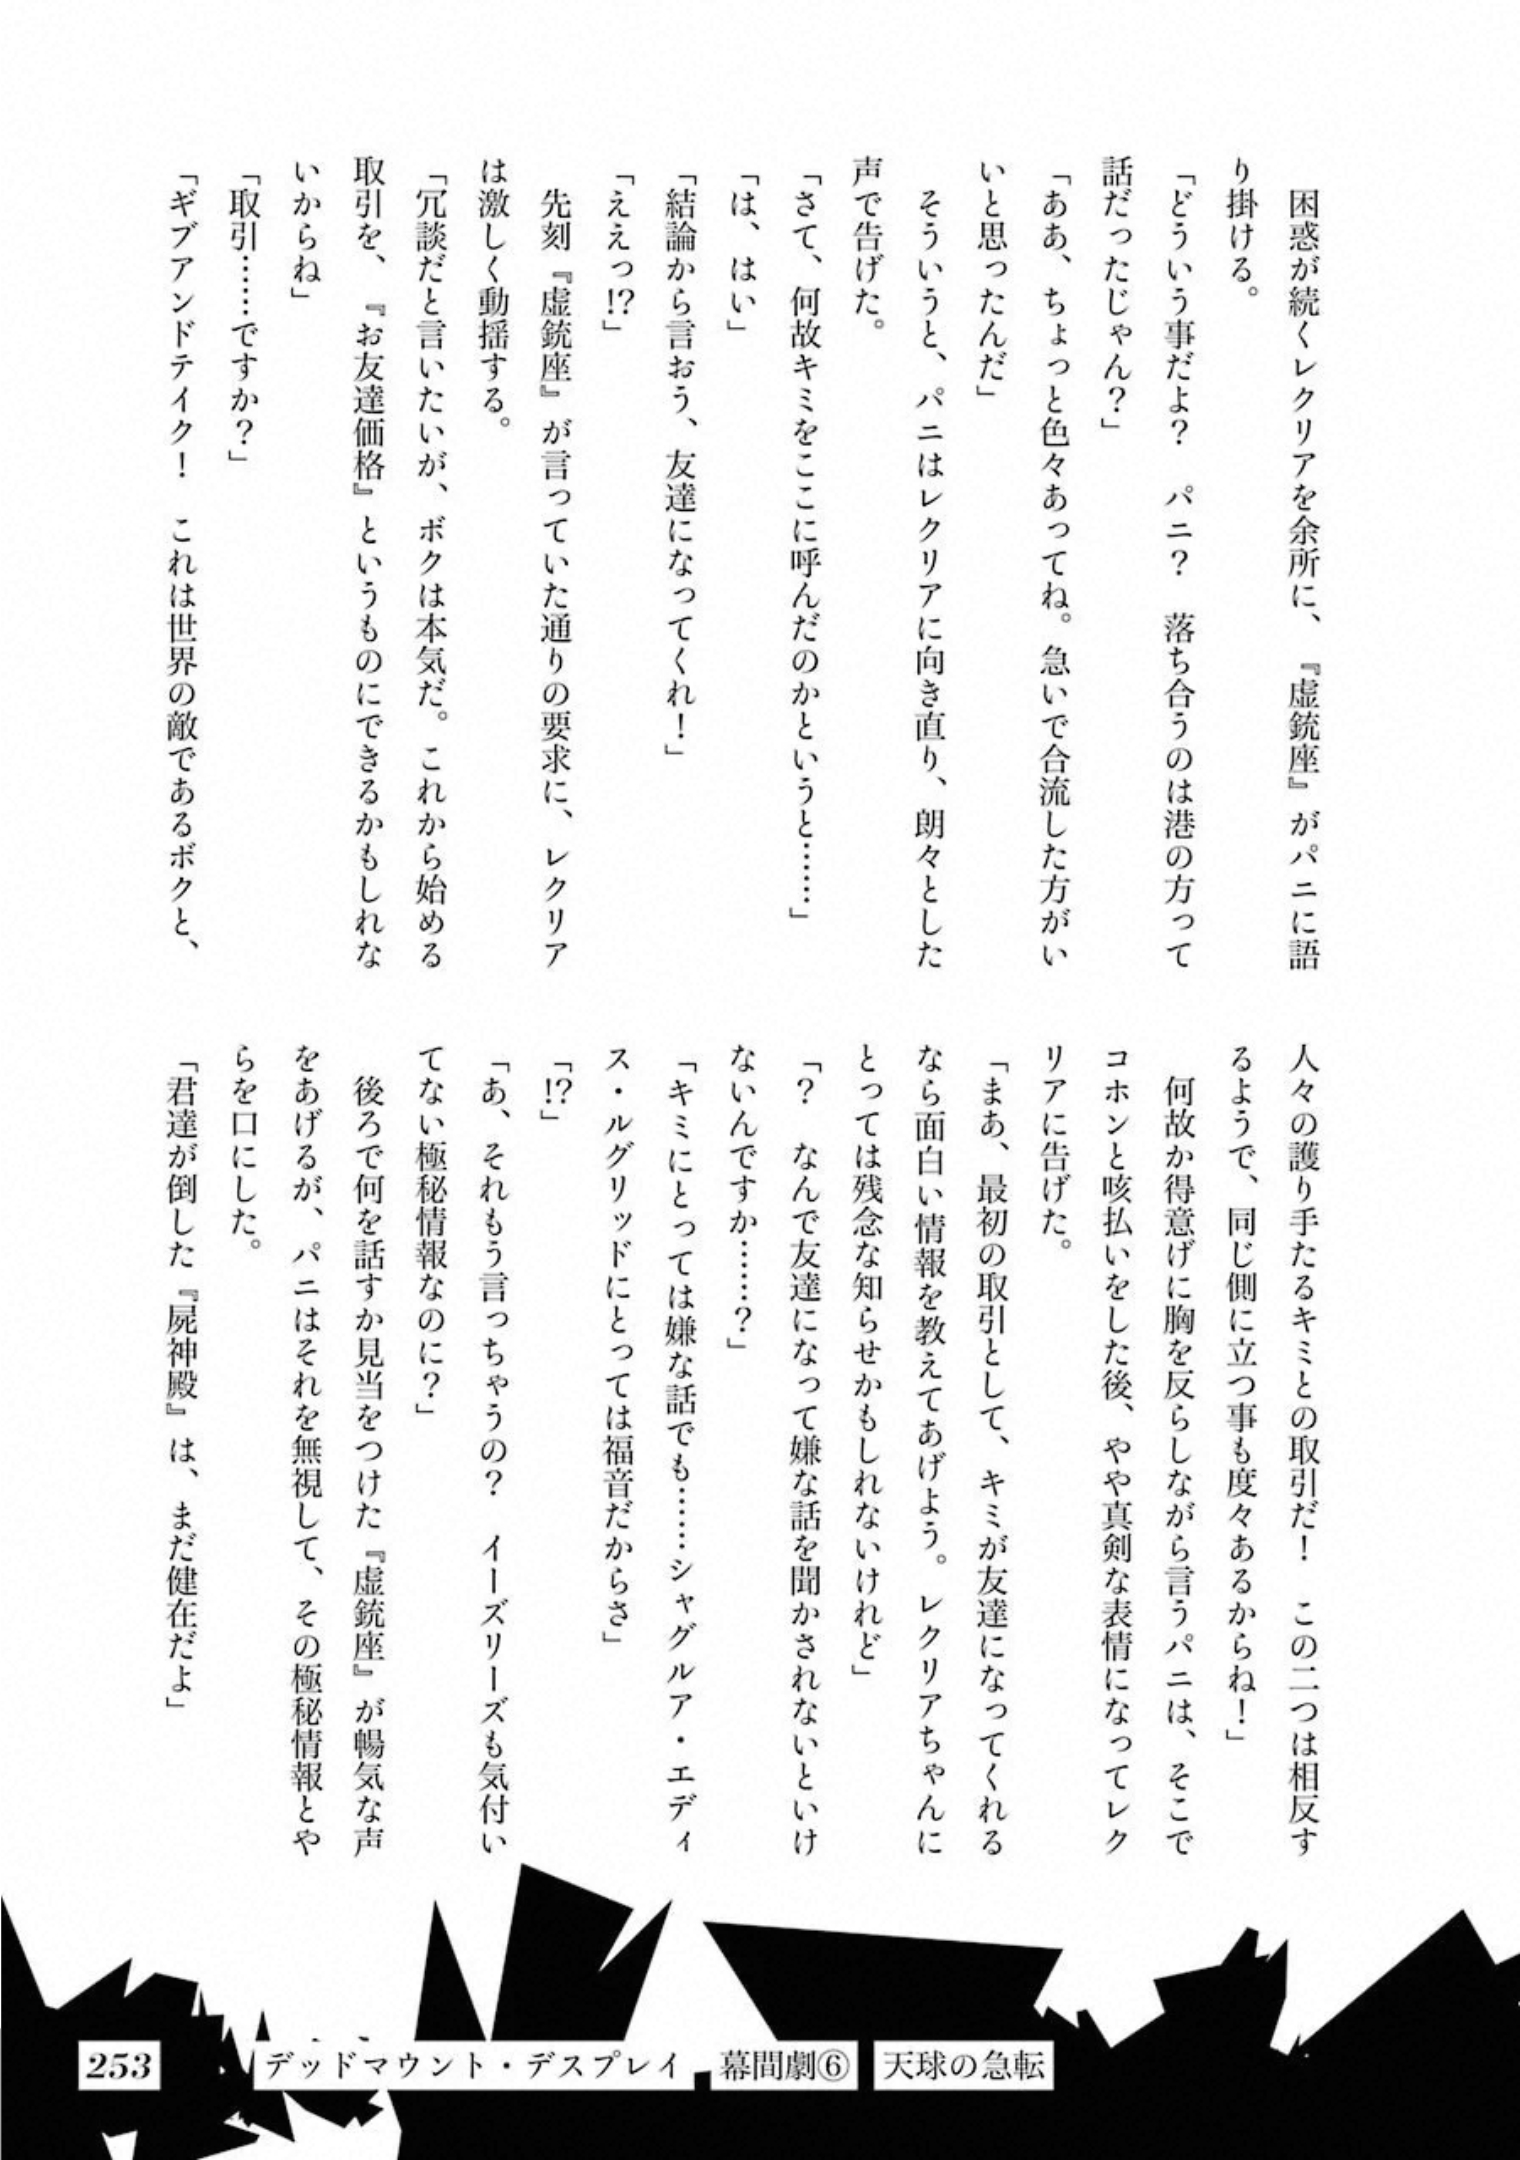 困惑が続くレクリアを余所に、『虚銃座』がパニに語
り掛ける。
「どういう事だよ？　パニ？　落ち合うのは港の方って
話だったじゃん？」
「ああ、ちょっと色々あってね。急いで合流した方がい
いと思ったんだ」
　そういうと、パニはレクリアに向き直り、朗々とした
声で告げた。
「さて、何故キミをここに呼んだのかというと……」
「は、はい」
「結論から言おう、友達になってくれ！」
「ええっ!?」
　先刻『虚銃座』が言っていた通りの要求に、レクリア
は激しく動揺する。
「冗談だと言いたいが、ボクは本気だ。これから始める
取引を、『お友達価格』というものにできるかもしれな
いからね」
「取引……ですか？」
「ギブアンドテイク！　これは世界の敵であるボクと、
人々の護り手たるキミとの取引だ！　この二つは相反す
るようで、同じ側に立つ事も度々あるからね！」
　何故か得意げに胸を反らしながら言うパニは、そこで
コホンと咳払いをした後、やや真剣な表情になってレク
リアに告げた。
「まあ、最初の取引として、キミが友達になってくれる
なら面白い情報を教えてあげよう。レクリアちゃんに
とっては残念な知らせかもしれないけれど」
「？　なんで友達になって嫌な話を聞かされないといけ
ないんですか……？」
「キミにとっては嫌な話でも……シャグルア・エディ
ス・ルグリッドにとっては福音だからさ」
「!?」
「あ、それもう言っちゃうの？　イーズリーズも気付い
てない極秘情報なのに？」
　後ろで何を話すか見当をつけた『虚銃座』が暢気な声
をあげるが、パニはそれを無視して、その極秘情報とや
らを口にした。
「君達が倒した『屍神殿』は、まだ健在だよ」
253　デッドマウント・デスプレイ　幕間劇⑥　天球の急転